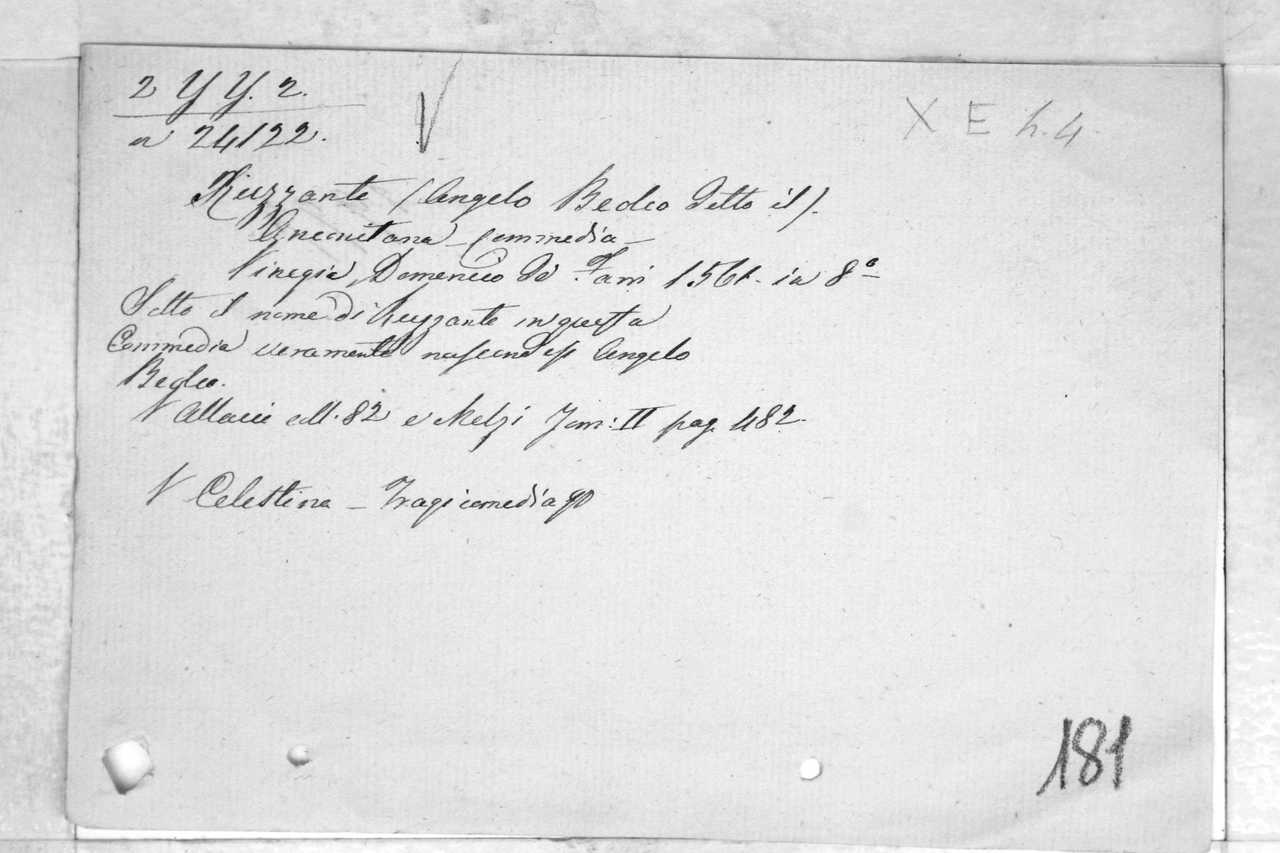 2 Y Y. 2.
a 24122.
V
X E h. 4
Ruzzante (Angelo Beolco detto il).
Anconitana - Commedia -
Vinegia, Domenico de Farri 1561. in 8°
Sotto il nome di Ruzzante in questa
Commedia veramente Angelo
Beolco.
V Allacci coll. 82 e Melzi Tom: II pag. 482.
V Celestina - Tragicomedia
181